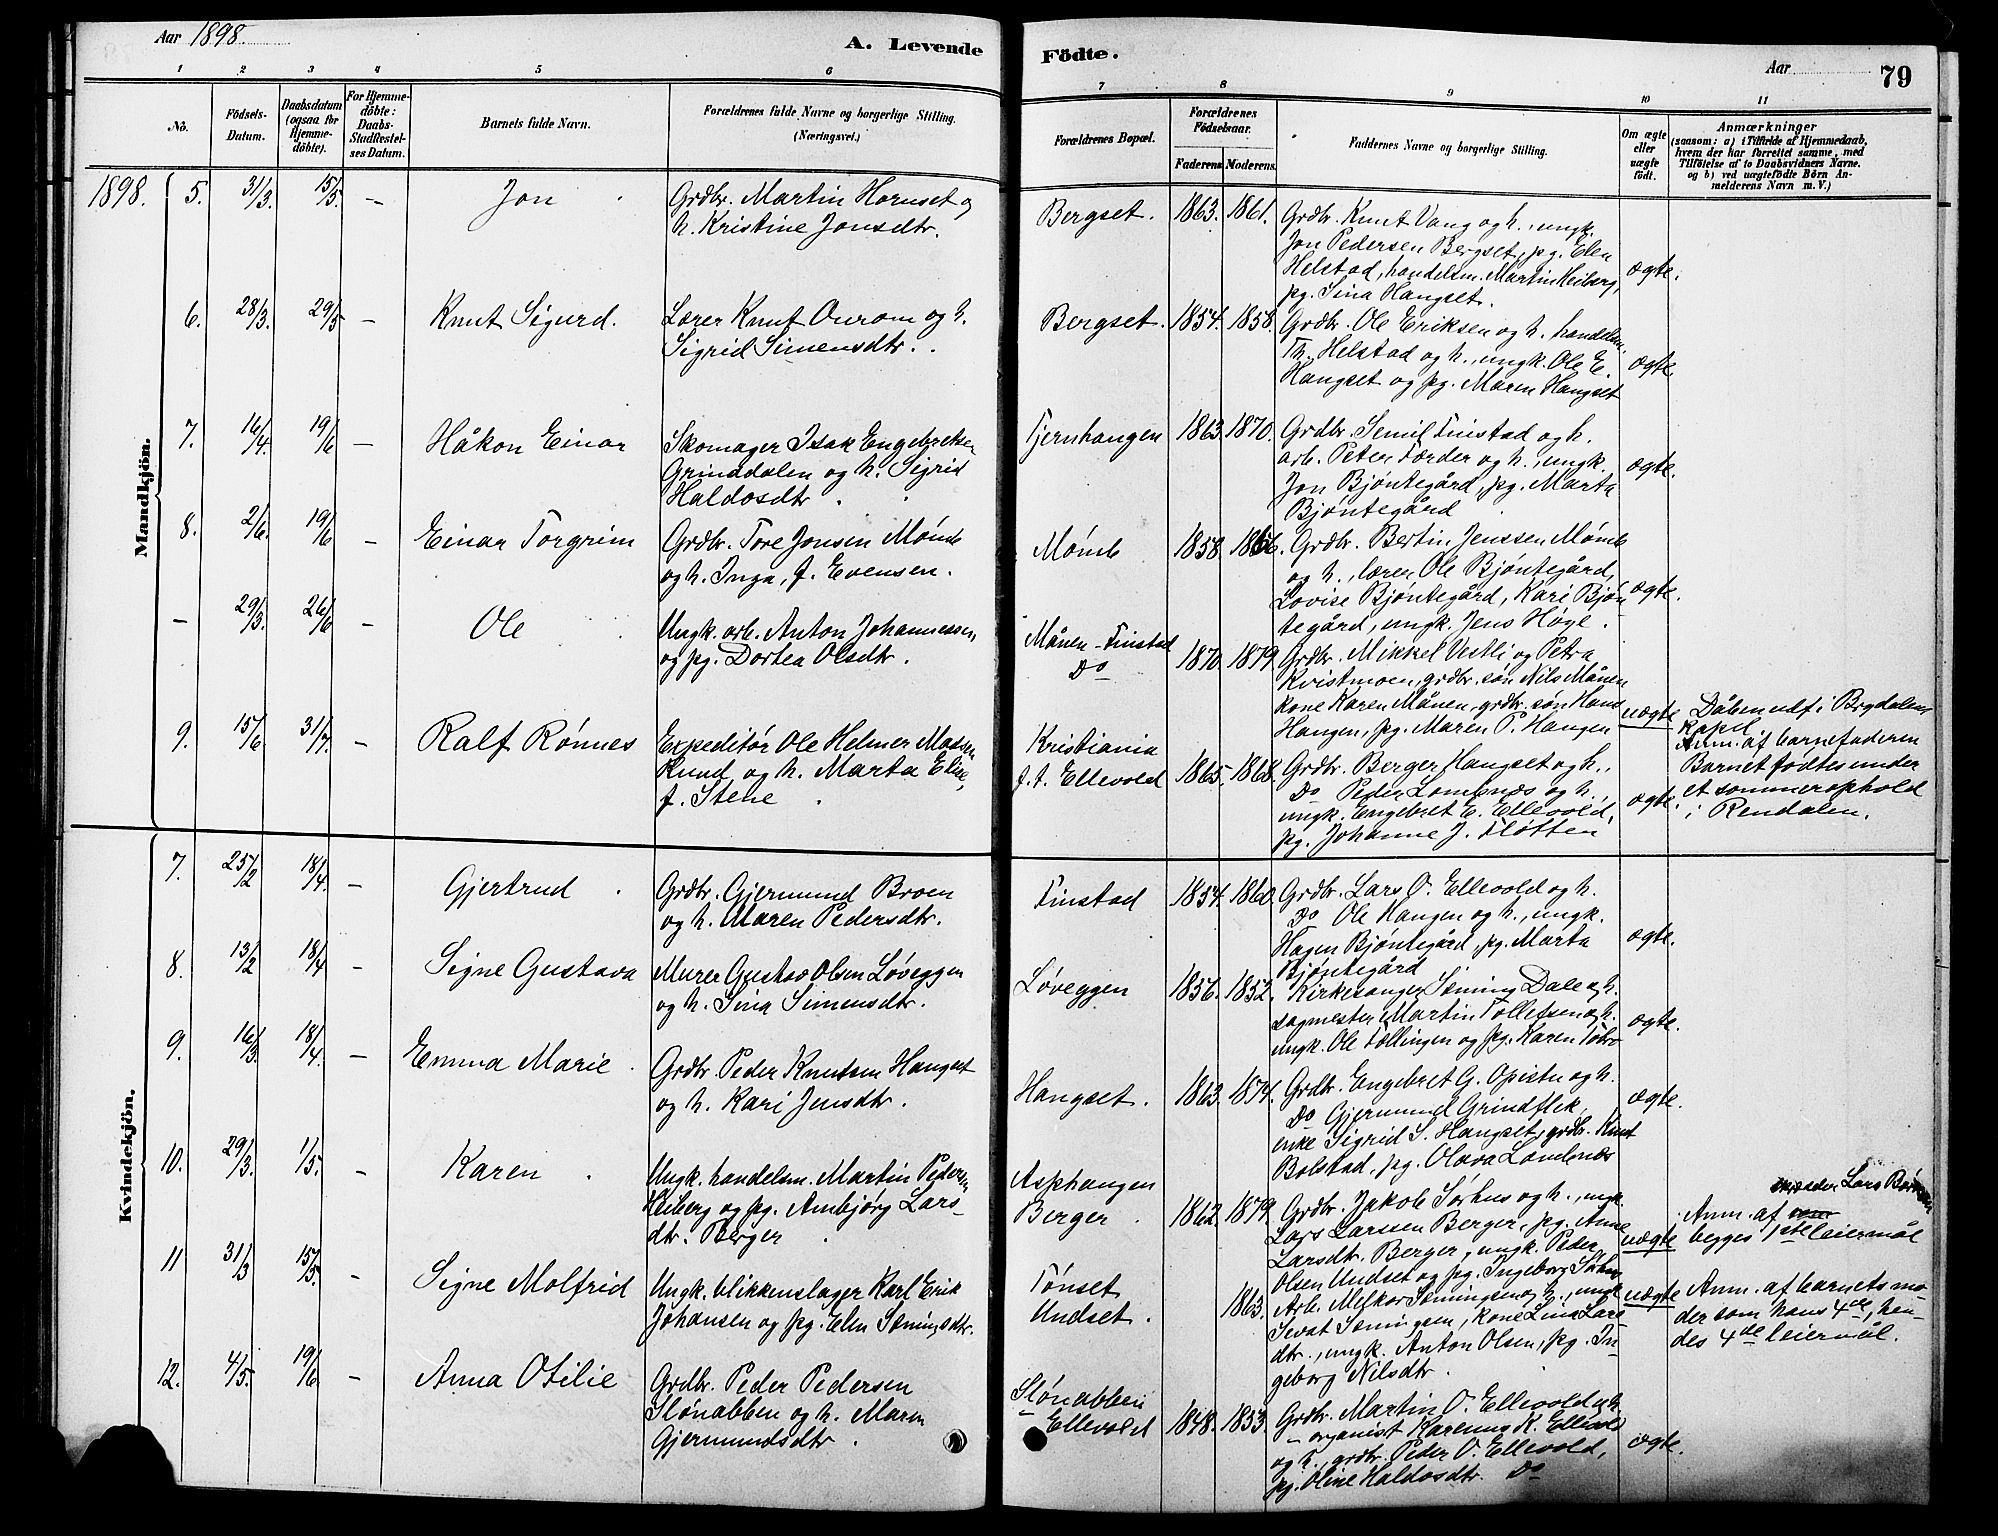 Aar 1898
A. Levende
Födte.
Aar
79
1 2 3 4 5 6
7 8 9 10 11
No.
Födsels-
Datum.
Daabsdatum
(ogsaa for
Hjemme-
döbte).
For Hjemme-
döbte:
Daabs-
Stadfæstel-
ses Datum.
Barnets fulde Navn.
Forældrenes fulde Navne og borgerlige Stilling.
(Næringsvei.)
Forældrenes Bopæl.
Forældrenes
Födselsaar.
Faderens Moderens.
Faddernes Navne og borgerlige Stilling.
Om ægte
eller
uægte
födt.
Anmærkninger
(saasom: a) i Tilfælde af Hjemmedaab,
hvem der har forrettet samme, med
Tilföielse af to Daabsvidners Navne.
og b) ved uægtefödte Börn An-
melderens Navn m. V.)
Mandkjön.
1898. 5. 31/3. 15/5. –
Jon
Grdbr. Martin Hornset og
h. Kristine Jonsdtr.
Bergset. 1863. 1861.
Grdbr. Knut Vang og h., ungk.
Jon Pedersen Bergset, pg. Elen
Helstad, handelsm. Martin Heiberg,
pg. Sina Hangset.
ægte.
6. 28/3. 29/5 –
Knut Sigurd.
Lærer Knut Ourom og h.
Sigrid Simensdtr.
Bergset. 1854. 1858.
Grdbr. Ole Eriksen og h. handelsm.
Th. Helstad og h., ungk. Ole E.
Hangset og pg. Maren Hangset
ægte.
7. 16/4. 19/6 –
Håkon Einar
Skomager Isak Engebretsen
Grinddalen og h. Sigrid
Haldosdtr
Tjernhangen 1863. 1870.
Grdbr. Semil Finstad og h.
arb. Peter Færder og h., ungk.
Jon Bjøntegård, pg. Marta
Bjøntegård
ægte.
8. 2/6. 19/6 –
Einar Torgrim
Grdbr. Tore Jonsen Mømb
og h. Inga, f. Evensen.
Mømb 1858. 1866.
Grdbr. Bertin Jenssen Mømb
og h., lærer Ole Bjøntegård,
Lovise Bjøntegård, Kari Bjøn-
tegård, ungk. Jens Høye.
ægte.
– 29/3. 26/6 –
Ole
Ungk. arb. Anton Johannessen,
og pg. Dortea Olsdtr.
Månen-Finstad
Do 1870. 1879
Grdbr. Mikkel Vestli og Petra
Kvistmoen, grdbr. søn Nils Månen
kone Karen Månen, grdbr. søn Hans
Hangen, pg. Maren P. Hangen
uægte
Dåben udf. i Brydalens
Kapel
Anm. af barnefaderen
9. 15/6 31/7. –
Ralf Rønnes
Expeditør Ole Helmer Madsen
Rund og h. Marta Eline,
f. Stene
Kristiania
f. t. Ellevold 1865. 1868.
Grdbr. Berger Hangset og h.,
Do Peder Lombnæs og h.,
ungk. Engebret E. Ellevold,
pg. Johanne J. Fløtten
ægte.
Barnet fødtes under
et sommerophold
i Rendalen.
Kvindekjön.
7. 25/2 18/4. –
Gjertrud
Grdbr. Gjermund Broen
og h. Maren Pedersdtr.
Finstad 1854. 1860.
Grdbr. Lars O. Ellevold og h.
Do Ole Hangen og h., ungk.
Hagen Bjøntegård, pg. Marta
Bjøntegård
ægte.
8. 13/2 18/4 –
Signe Gustava
Murer Gustav Olsen Løveggen
og h. Sina Simensdtr.
Løveggen 1856. 1852.
Kirkesanger Sæming Dale og h.
sagmester Martin Tollefsen og h.
ungk. Ole Føllingen og pg. Karen
ægte.
9. 16/3. 18/4. –
Emma Marie
Grdbr. Peder Knutsen Hangset
og h. Kari Jensdtr.
Hangset. 1863. 1874.
Grdbr. Engebret G. Opistu og h.
Do Gjermund Grindflek,
enke Sigrid S. Hangset, grdbr. Knut
Bolstad, pg. Olava Lombnæs
ægte.
10. 29/3. 1/5. –
Karen
Ungk. handelsm. Martin Pedersen
Heiberg og pg. Annbjørg Lars-
dtr. Berger
Asphangen
Berger 1862. 1879
Grdbr. Jakob Sørhus og h., ungk.
Lars Larssen Berger, pg. Anne
Larsdtr. Berger, ungk. Peder
Olsen Undset og pg. Ingeborg Sørhus
uægte
skræder Lars
Anm. af
begges 1ste leiermål
11 31/3 15/5. –
Signe Molfrid
Ungk. blikkenslager Karl Erik
Johansen og pg. Elen Sæmingsdtr.
Tønset
Undset. 1863.
Arb. Melkor Sæmingsen og h., ungk
Sevat Sæmingsen, kone Lina Lars-
dtr., ungk. Anton Olsen, pg. In-
geborg Nilsdtr.
uægte
Anm. af barnets mo-
der som hans 4de, hen-
des 4de leiermål.
12. 4/5. 19/6 –
Anna Otilie
Grdbr. Peder Pedersen
Slønabben og h. Maren
Gjermundsdtr.
Slønabben
Ellevold 1848. 1853.
Grdbr. Martin O. Ellevold og h.
organist Karenus K. Ellevold
og h., grdbr. Peder O. Ellevold,
pg. Oline Haldosdtr. Do
ægte.